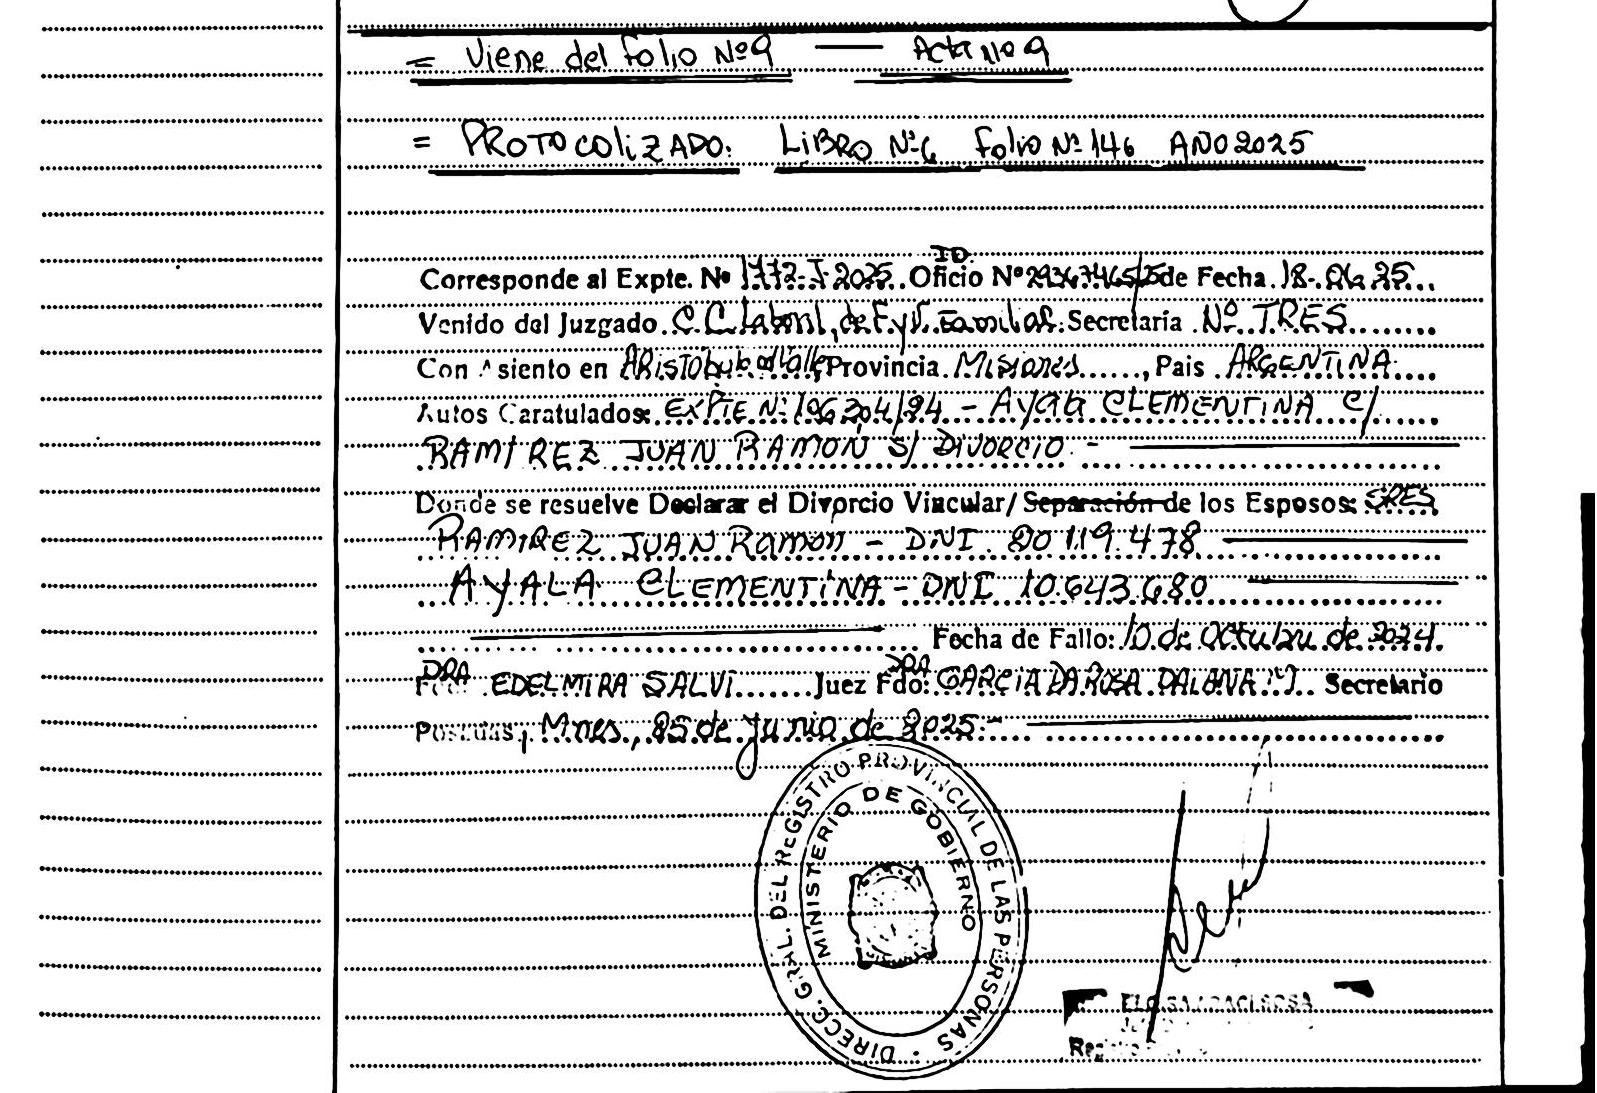 = Viene del folio Nº9 — Acta Nº 9
= PROTOCOLIZADO: LIBRO Nº6 Folio Nº 146 AÑO 2025
ID
Corresponde al Expte. Nº 1772-J-2025. Oficio Nº 29367465/25 de Fecha 18-06-25
Venido del Juzgado C.C. Laboral, de F. y V. Familiar. Secretaría Nº TRES
Con Asiento en Aristóbulo del Valle, Provincia Misiones, Pais ARGENTINA
Autos Caratulados: EXPTE Nº 196204/24 - Ayala CLEMENTINA C/
RAMIREZ JUAN RAMON S/ DIVORCIO -
Donde se resuelve Declarar el Divorcio Vincular/ Separación de los Esposos: SRES
RAMIREZ JUAN Ramon - DNI 80.119.478
AYALA CLEMENTINA - DNI 10.643.680
Fecha de Fallo: 10 de Octubre de 2024.
DRA EDELMIRA SALVI Juez Fdo: DRA GARCIA DA ROSA DAIANA M. Secretario
Posadas, Mnes, 25 de Junio de 2025.-
DIRECC. GRAL. DEL REGISTRO PROVINCIAL DE LAS PERSONAS
MINISTERIO DE GOBIERNO